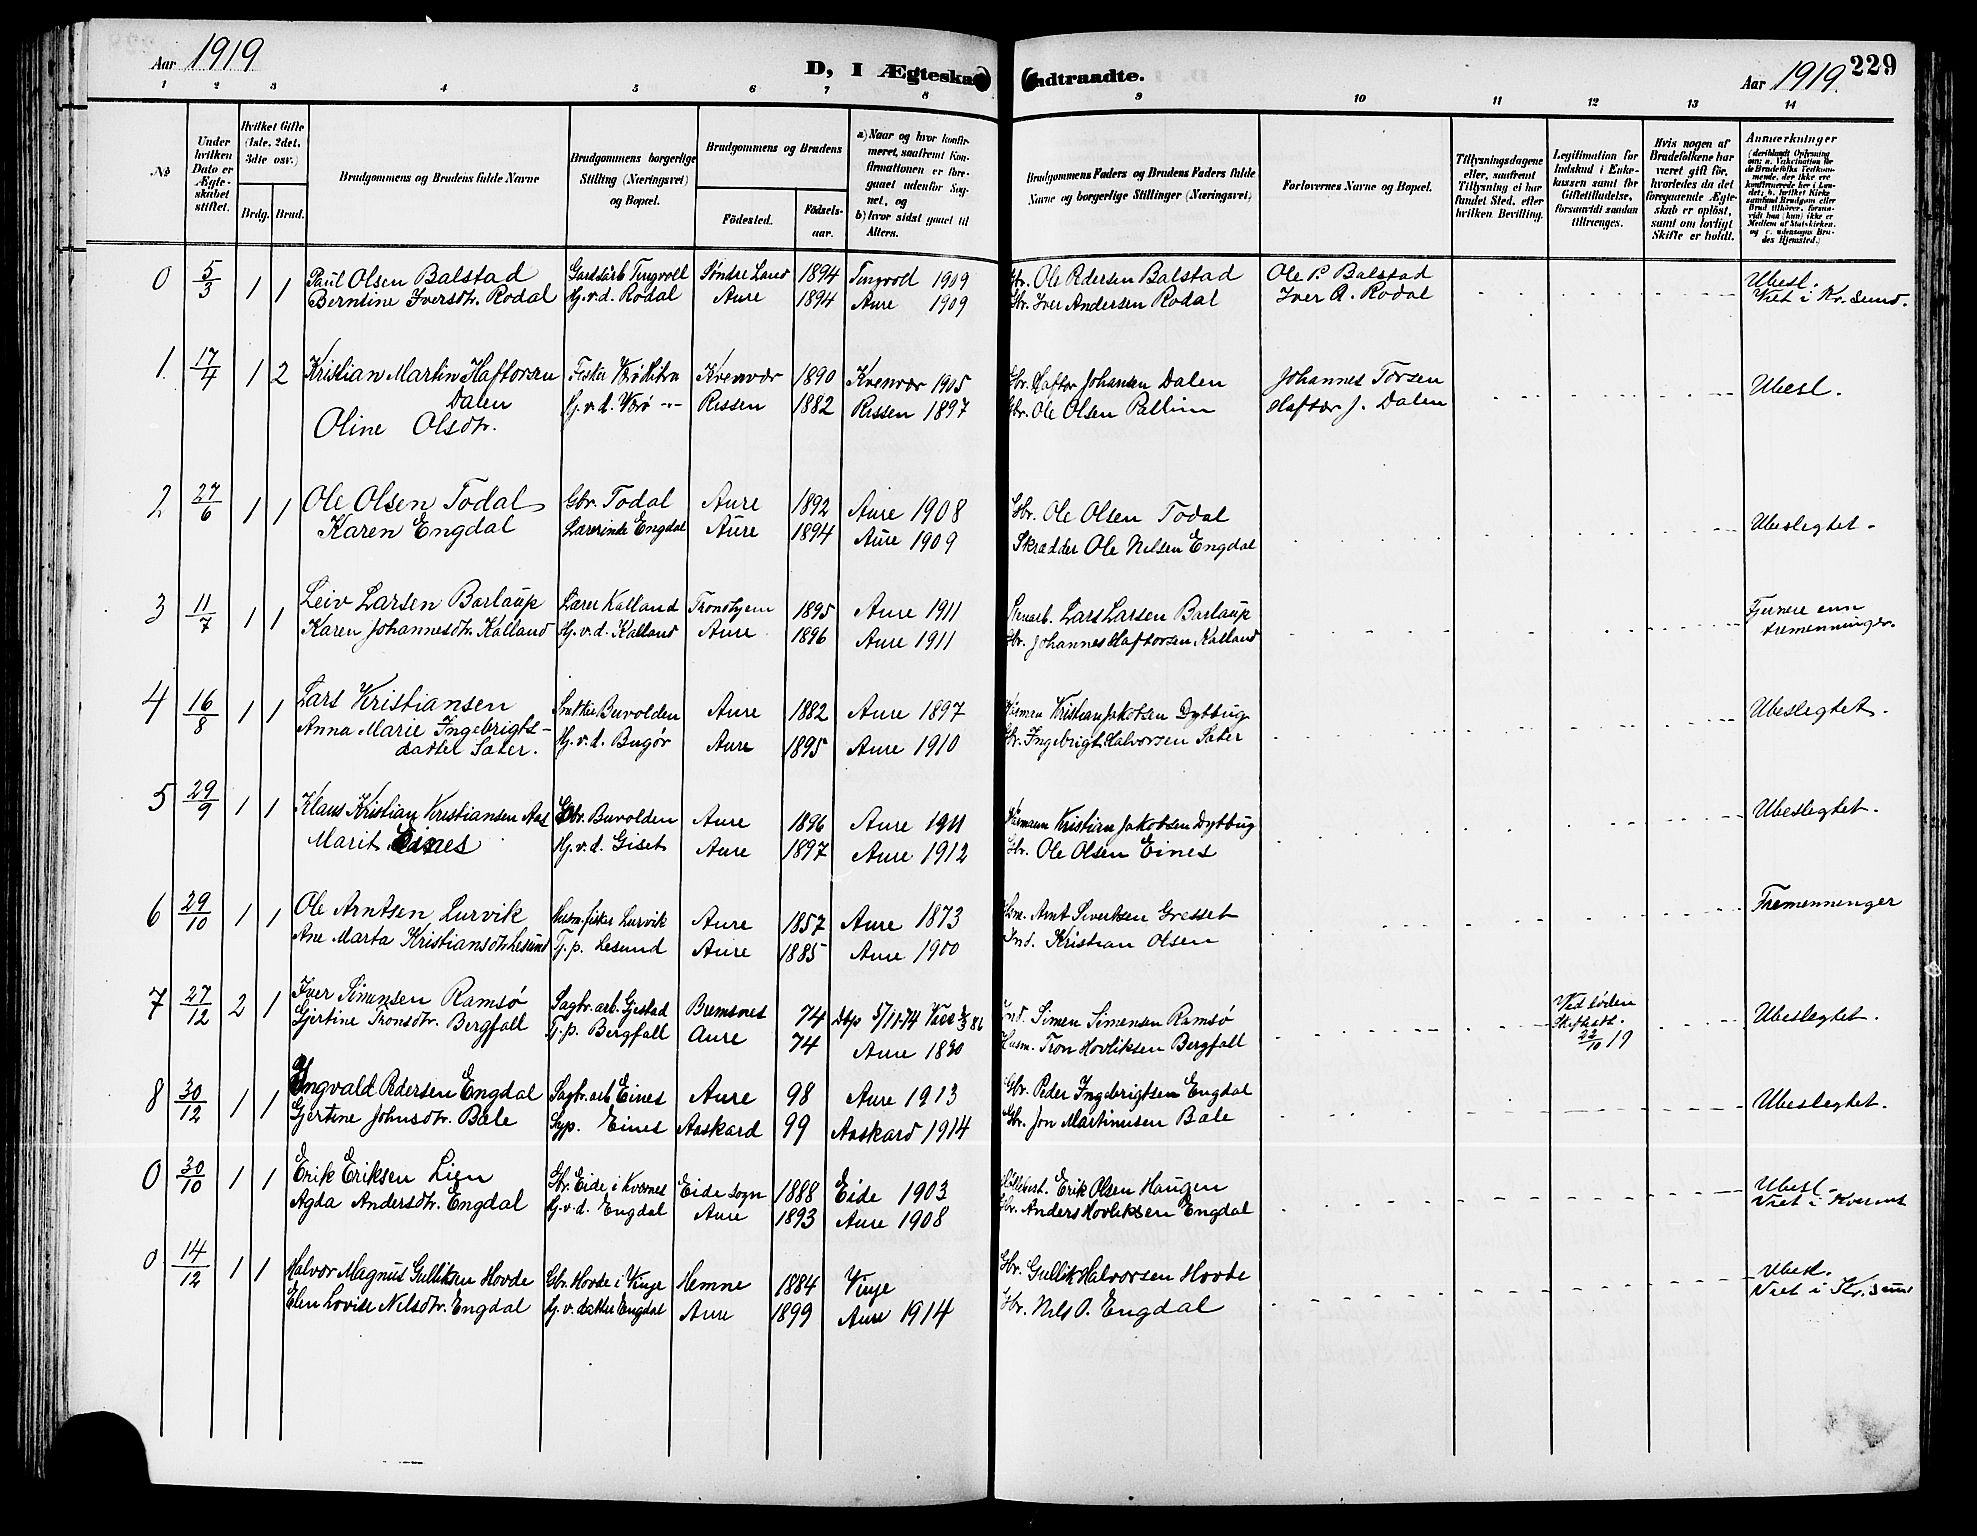 Aar 1919
D, I Ægteska
indtraadte.
Aar 1919.
229
1 2 3 4 5 6 7 8 9 10 11 12 13 14
No
Under hvilken Dato er Ægteskabet stiftet.
Hvilket Gifte (1ste, 2det, 3die osv.)
Brdg. Brud.
Brudgommens og Brudens fulde Navne
Brudgommens borgerlige Stilling (Næringsvei) og Bopæl.
Brudgommens og Brudens
Födested. Födsels-aar.
a) Naar og hvor konfirmeret, saafremt Konfirmationen er foregaaet udenfor Sognet, og
b) hvor sidst gaaet til Alters.
Brudgommens Faders og Brudens Faders fulde Navne og borgerlige Stillinger (Næringsvei)
Forlovernes Navne og Bopæl.
Tillysningsdagene eller, saafremt Tillysning ei har fundet Sted, efter hvilken Bevilling.
Legitimation for Indskud i Enkekassen samt for Giftetilladelse, forsaavidt saadan tiltrænges.
Hvis nogen af Brudefolkene har været gift før, hvorledes da det foregaaende Ægteskab er oplöst, samt om lovligt Skifte er holdt.
Anmærkninger
0 5/3 1 1 Paul Olsen Balstad Gardsarb Tingvoll Söndre Land 1894 Tingvold 1909 Gbr. Ole Pdersen Balstad Ole P Balstad Ubesl.
Berntine Iversdtr. Rodal Hj.v.d. Rodal Aure 1894 Aure 1909 Gbr. Iver Andersen Rodal Iver A. Rodal Viet i Kr.sund.
1. 17/4 1 2 Kristian Martin Haftorsen Fisker Værö Hitra Kvenvær 1890 Kvenvær 1905 Gbr. Haftor Johansen Dalen Johannes Torsen Ubesl.
Dalen Hj.v.d. Værö -"- Rissen 1882 Rissen 1897 Gbr. Ole Olsen Pallim Haftor J. Dalen
Oline Olsdtr.
2 27/6 1 1 Ole Olsen Todal Gbr. Todal Aure 1892 Aure 1908 Gbr. Ole Olsen Todal Ubeslegtet.
Karen Engdal Lærerinde Engdal Aure 1894 Aure 1909 Skrædder Ole Nilsen Engdal
3 11/7 1 1 Leiv Larsen Barlaup Lærer Kalland Tronshjem 1895 Aure 1911 Lars Larsen Barlaup Fjernere enn
Karen Johannesdtr. Kalland Hj.v.d. Kalland Aure 1896 Aure 1911 Gbr. Johannes Haftorsen Kalland tremenninger.
4 16/8 1 1 Lars Kristiansen Snekker Buvolden Aure 1882 Aure 1897 Kristian Jakobsen Dybbug Ubeslegtet.
Anna Marie Ingebrigts- Hj.v.d. Bugör Aure 1895 Aure 1910 Gbr. Ingebrigt Halvorsen Sæter
datter Sæter.
5 29/9 1 1 Klaus Kristian Kristiansen Aas Gbr. Buvolden Aure 1896 Aure 1911 Kristian Jakobsen Dybbug Ubeslegtet.
Marit Eines Hj.v.d. Giset Aure 1897 Aure 1912 Gbr. Ole Olsen Eines
6 29/10 1 1 Ole Arntsen Lurvik Husm. fisker Lurvik Aure 1857 Aure 1873 Hsm. Arnt Sivertsen Gresset Tremenninger
Ane Marta Kristiansdtr. Lesund T.p. Lesund Aure 1885 Aure 1900 Ind. Kristian Olsen
7 27/12 2 1 Iver Simensen Ramsö Sagbr.arb. Gjestad Bremsnes 74 Dbp 5/11-74 Vacc 86 Ind. Simen Simensen Ramsö Ved döden Ubeslegtet.
Gjertine Tronsdtr. Bergfall T.p. Bergfall Aure 74 Aure 1890 Husm. Tron Hovliksen Bergfall Skifteatt. 22/10 19
8 30/12 1 1 Ingvald Pedersen Engdal Sagbr.arb Eines Aure 98 Aure 1913 Gbr. Peder Ingebrigtsen Engdal Ubeslegtet.
Gjertine Johnsdtr. Bale Syp. Eines Aaskard 99 Aaskard 1914 Gbr. Jon Martinusen Bale
0 30/10 1 1 Erik Eriksen Lien Gbr. Eide i Kvernes Eide sogn 1888 Eide 1903 Erik Olsen Haugen Ubesl.
Agda Andersdtr. Engdal Hj.v.d. Engdal Aure 1893 Aure 1908 Gbr. Anders Hovliksen Engdal Viet i Kvernes
0 14/12 1 1 Halvor Magnus Gulliksen Hovde Gbr. Hovde i Vinje Hemne 1884 Vinje Gbr. Gullik Halvorsen Hovde Ubesl.
Elen Lovise Nilsdtr. Engdal Hj.v.datter Engdal Aure 1899 Aure 1914 Gbr. Nils O. Engdal Viet i Kr.sund